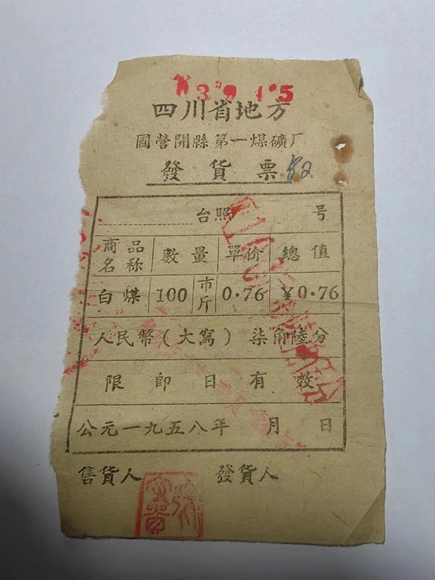 四川省地方
國营開縣第一煤礦厂
發貨票
台照 號
商品名称 數量 單价 總值
白煤 100 市斤 0.76 ¥0.76
人民幣（大寫）柒角陸分
限即日有效
公元一九五八年 月 日
售貨人 發貨人